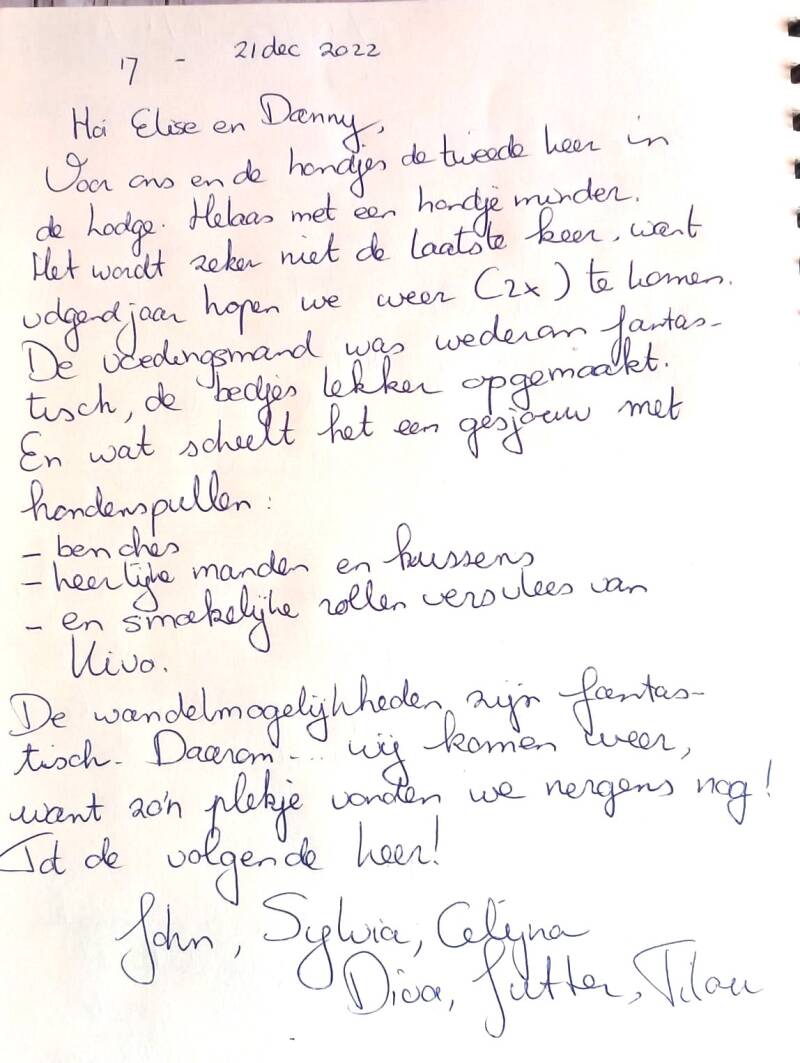 17 - 21 dec 2022
Hoi Elise en Danny,
Voor ons en de hondjes de tweede keer in
de Lodge. Helaas met een hondje minder.
Het wordt zeker niet de laatste keer, want
volgend jaar hopen we weer (2x) te komen.
De voedingsmand was wederom fantas-
tisch, de bedjes lekker opgemaakt.
En wat scheelt het een gesjouw met
hondenspullen:
- benches
- heerlijke manden en kussens
- en smakelijke rollen versvlees van
Kivo.
De wandelmogelijkheden zijn fantas-
tisch. Daarom... wij komen weer,
want zo'n plekje vonden we nergens nog!
Tot de volgende keer!
John, Sylvia,
Diva,